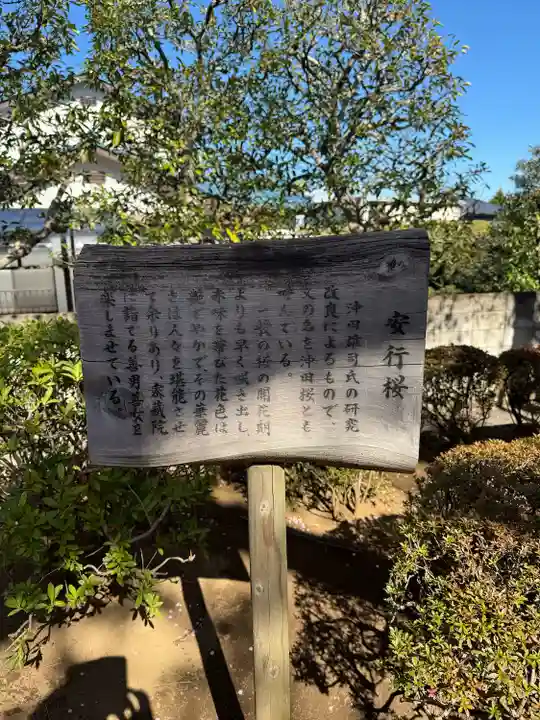 安行桜
沖田雄司氏の研究
改良によるもので、
又の名を沖田桜とも
呼んでいる。
一般の桜の開花期
よりも早く咲き出し、
赤味を帯びた花色は
艶でやかでその華麗
さは人々を堪能させ
て余りあり、密蔵院
に詣でる善男善女を
楽しませている。